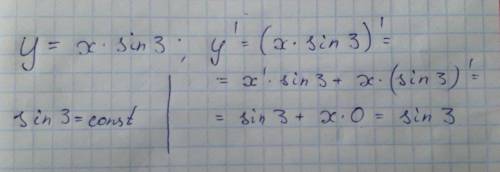 y = x · sin 3 ; y' = (x · sin 3)' =
= x' · sin 3 + x · (sin 3)' =
sin 3 = const
= sin 3 + x · 0 = sin 3